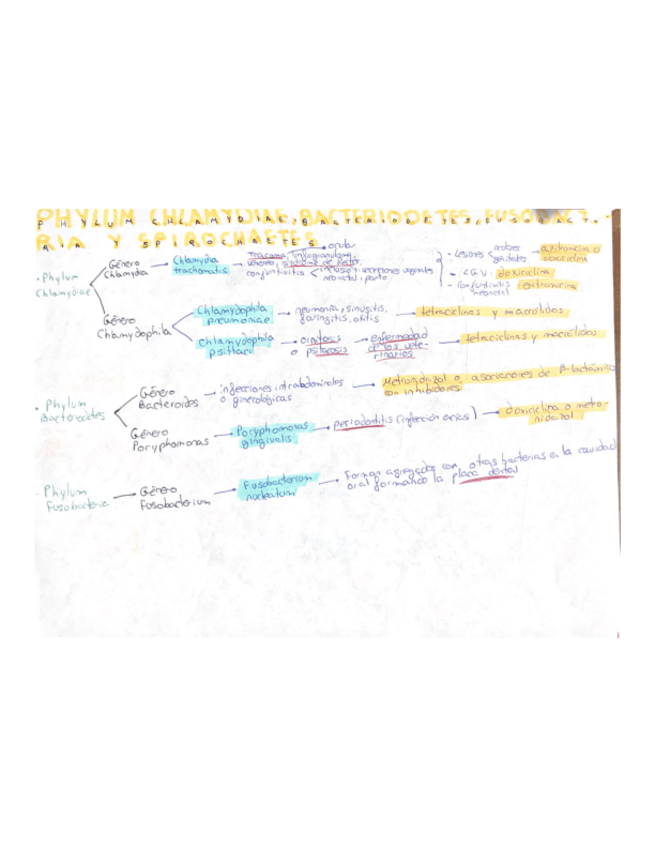 PHYLUM CHLAMYDIAE, BACTERIODETES, FUSOBACTE-
RIA Y SPIROCHAETES
· Phylum
Chlamydiae
Género
Chlamydia
Chlamydia
trachomatis
Tracoma, linfogranuloma
venéreo, síndrome de Reiter,
conjuntivitis
inclusión: secreciones vaginales
neonatal: parto
- Lesiones oculares
genitales
azitromicina o
doxiciclina
- LGV: doxiciclina
- Conjuntivitis neonatal
Eritromicina
Género
Chlamydophila
Chlamydophila
pneumoniae
neumonía, sinusitis,
faringitis, otitis
tetraciclinas y macrólidos
Chlamydophila
psittaci
ornitosis
o psitacosis
enfermedad
de los vete-
rinarios
tetraciclinas y macrólidos
· Phylum
Bacteriodetes
Género
Bacteroides
infecciones intrabdominales
o ginecológicas
Metronidazol o asociaciones de β-lactámicos
con inhibidores
Género
Poryphomonas
Poryphomonas
gingivalis
periodontitis (infección encías)
doxiciclina o metro-
nidazol
· Phylum
Fusobacteria
Género
Fusobacterium
Fusobacterium
nucleatum
Forman agregados con otras bacterias en la cavidad
oral formando la placa dental